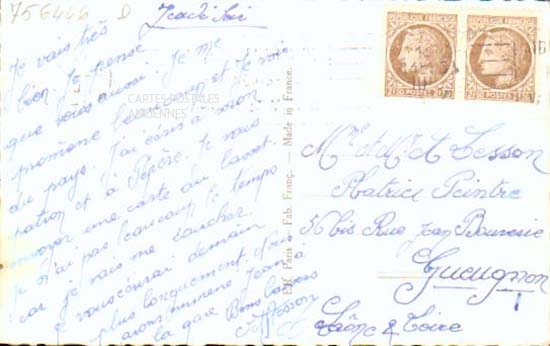 756446 D
Jeudi soir
Je vais très
bien. Je pense
que vous aussi. Je me
promène beaucoup et je vois
du pays. J'ai écris à
et à Pépère. Je vais
envoyer une carte du
je n'ai pas beaucoup le temps
car je vais me coucher.
Je vous écrirai demain
plus longuement.
Jean à
la gare Bons baisers
CARTES POSTALES
ANCIENNES
Paris - Fab. Franç. - Made in France.
REPUBLIQUE FRANÇAISE
POSTES
REPUBLIQUE FRANÇAISE
POSTES
Mr et Mme Tesson
Platrier Peintre
56 bis Rue Jean
Gueugnon
Saône & Loire